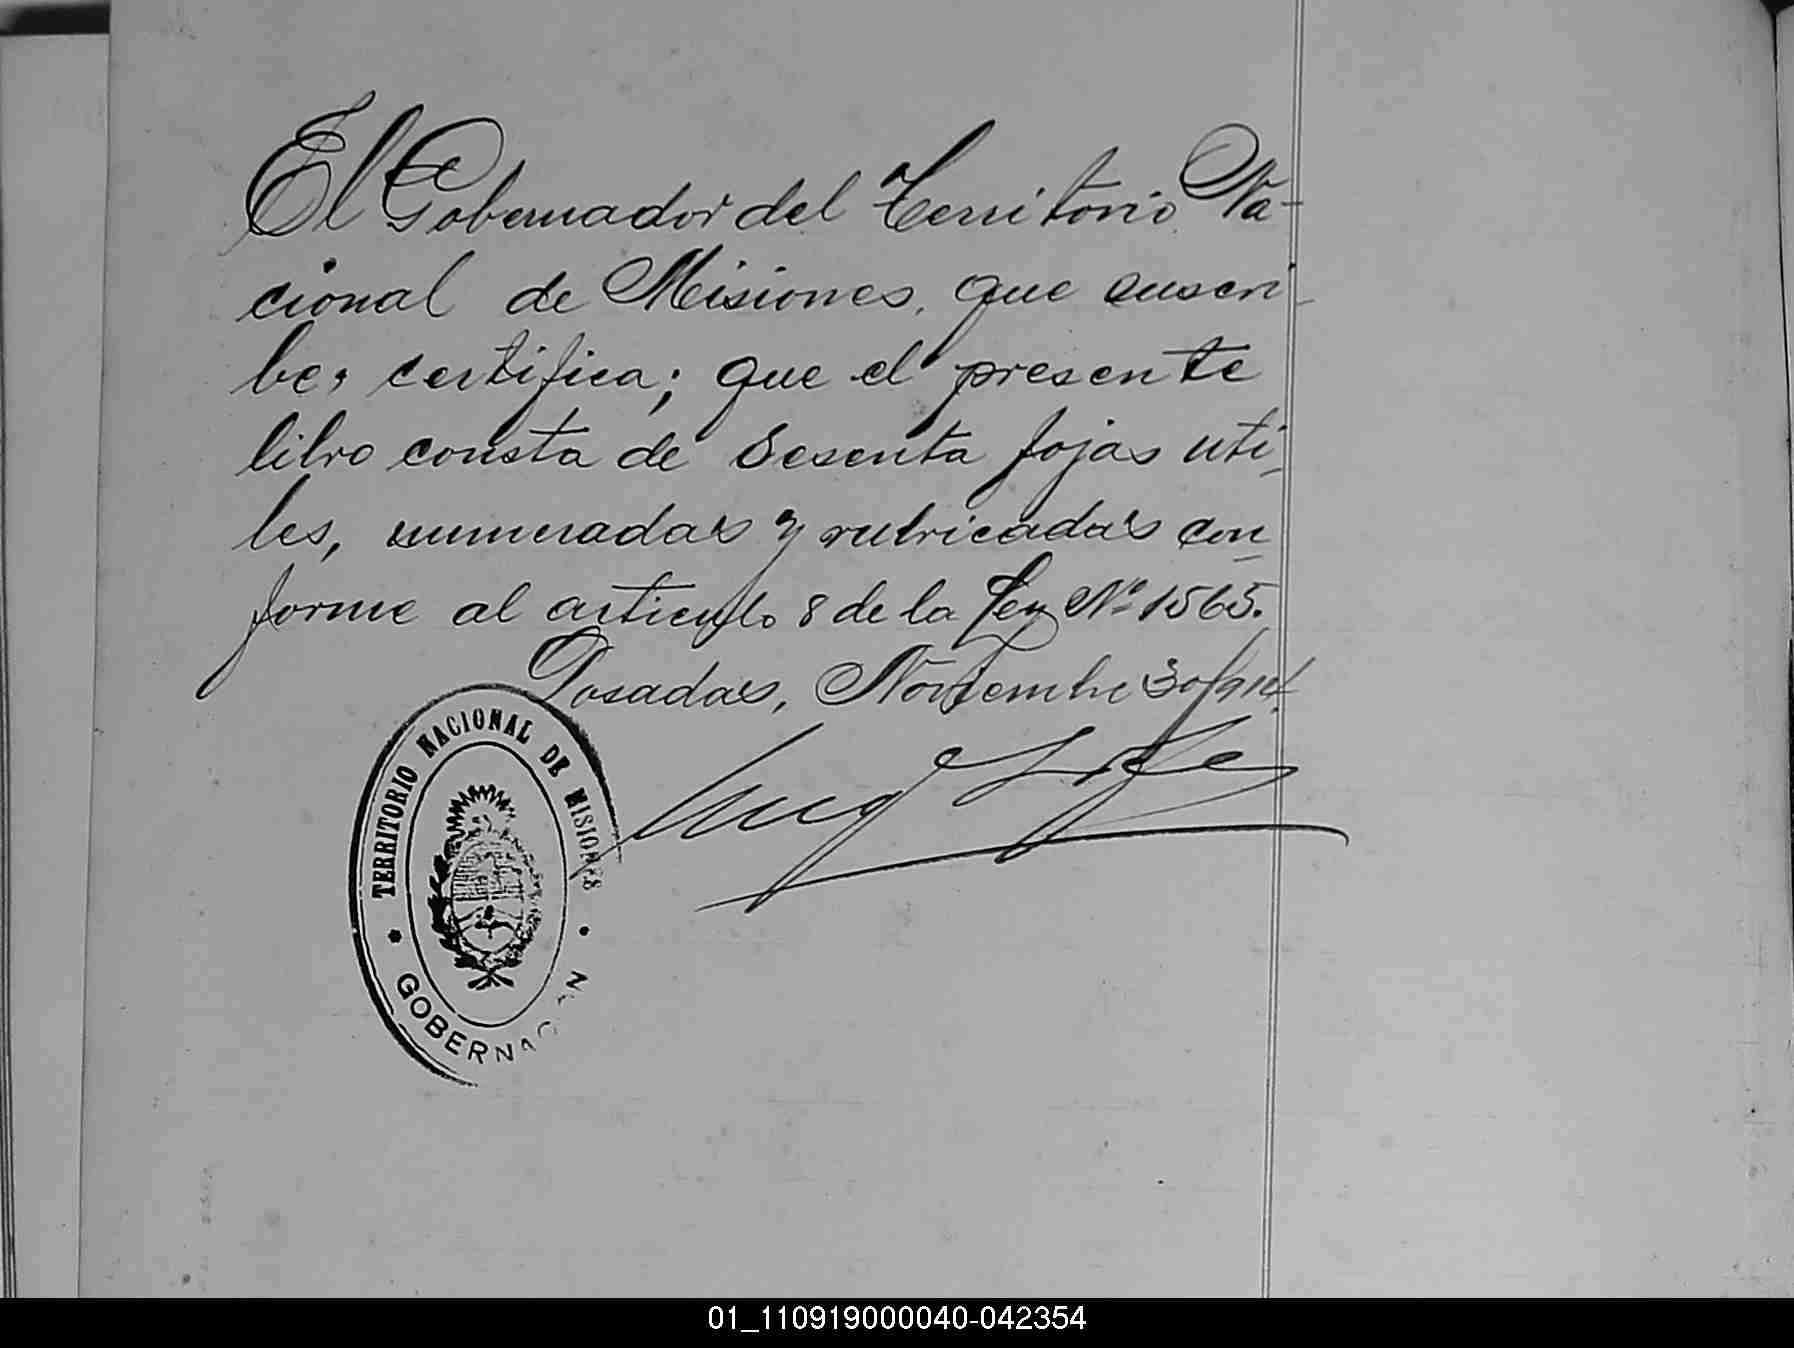 El Gobernador del Territorio Na-
cional de Misiones, que suscri-
be, certifica; que el presente
libro consta de sesenta fojas uti-
les, numeradas y rubricadas con
forme al articulo 8 de la Ley Nº 1565.
Posadas, Noviembre 30/914.
TERRITORIO NACIONAL DE MISIONES
GOBERNACION
01_110919000040-042354